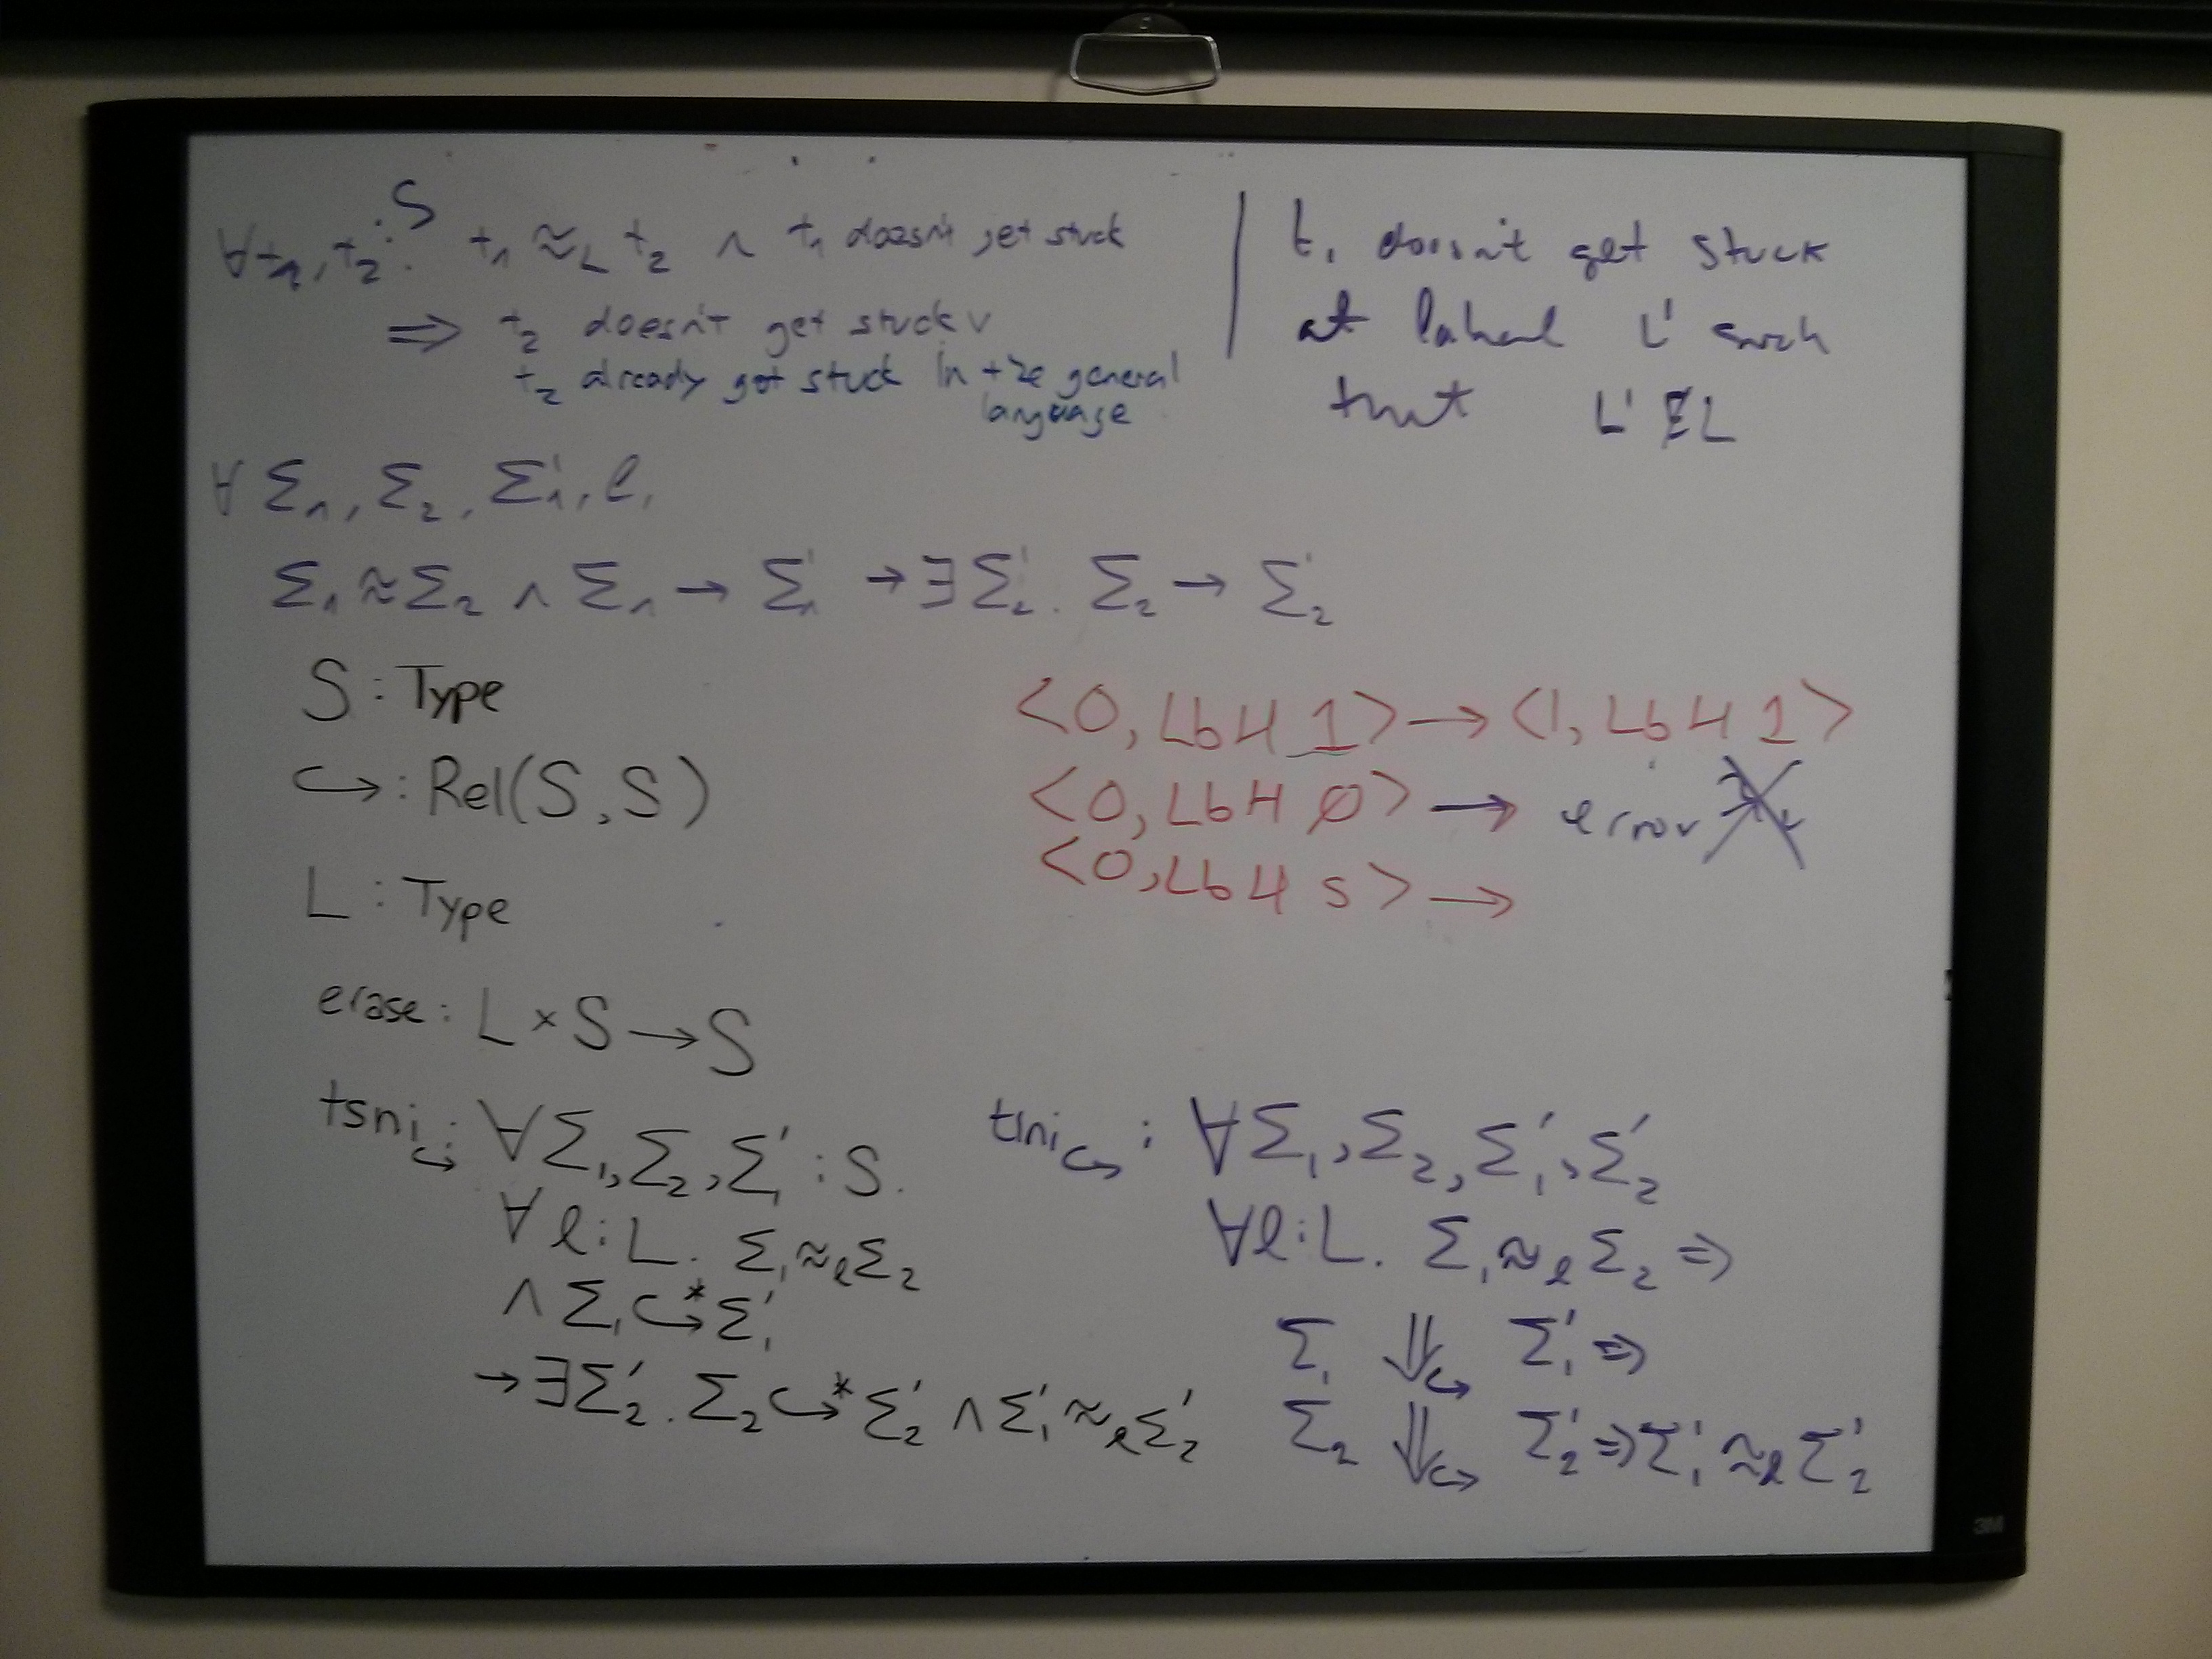 ∀t₁, t₂ : S. t₁ ≈_L t₂ ∧ t₁ doesn't get stuck
⟹ t₂ doesn't get stuck ∨
t₂ already got stuck in the general
language
t₁ doesn't get stuck
at label L' such
that L' ⋢ L
∀ Σ₁, Σ₂, Σ₁', l,
Σ₁ ≈ Σ₂ ∧ Σ₁ → Σ₁' → ∃ Σ₂'. Σ₂ → Σ₂'
S : Type
↪ : Rel(S, S)
L : Type
erase : L × S → S
<0, Lb H 1> → <1, Lb H 1>
<0, Lb H 0> → error
<0, Lb H s> →
tsni↪ : ∀Σ₁, Σ₂, Σ₁' : S.
∀ l : L. Σ₁ ≈ₗ Σ₂
∧ Σ₁ ↪* Σ₁'
→ ∃Σ₂'. Σ₂ ↪* Σ₂' ∧ Σ₁' ≈ₗ Σ₂'
tini↪ : ∀Σ₁, Σ₂, Σ₁', Σ₂'
∀l : L. Σ₁ ≈ₗ Σ₂ ⇒
Σ₁ ⇓↪ Σ₁' ⇒
Σ₂ ⇓↪ Σ₂' ⇒ Σ₁' ≈ₗ Σ₂'
3M